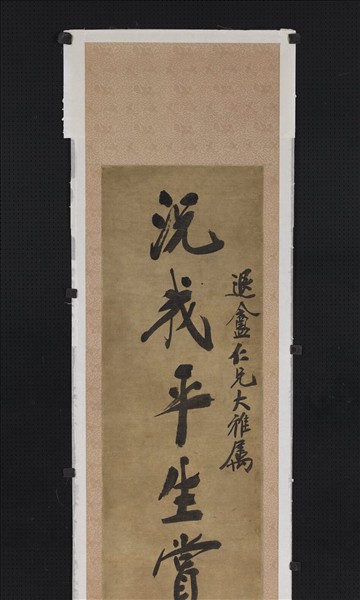 遐盦仁兄大雅属
況我平生賞